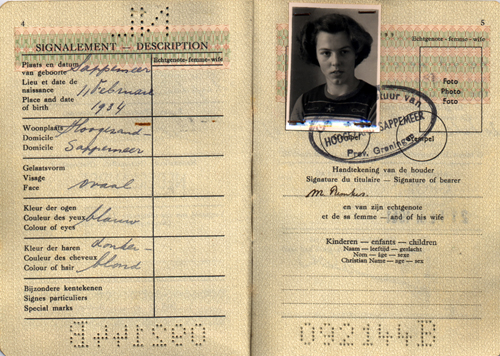 4
SIGNALEMENT — DESCRIPTION
Echtgenote-femme-wife
Plaats en datum
van geboorte
Sappemeer
Lieu et date de
naissance
11 Februari
Place and date
of birth
1934
Woonplaats
Hoogezand-
Domicile
Domicile
Sappemeer
Gelaatsvorm
Visage
Face
ovaal
Kleur der ogen
Couleur des yeux
blauw
Colour of eyes
Kleur der haren
donker-
Couleur des cheveux
Colour of hair
blond
Bijzondere kentekenen
Signes particuliers
Special marks
092144B
5
Echtgenote-femme-wife
Foto
Photo
Foto
tuur van
HOOGEZAND SAPPEMEER
Prov. Groningen
Stempel
Handtekening van de houder
Signature du titulaire — Signature of bearer
en van zijn echtgenote
et de sa femme — and of his wife
Kinderen — enfants — children
Naam — leeftijd — geslacht
Nom — âge — sexe
Christian Name — age — sex
092144B